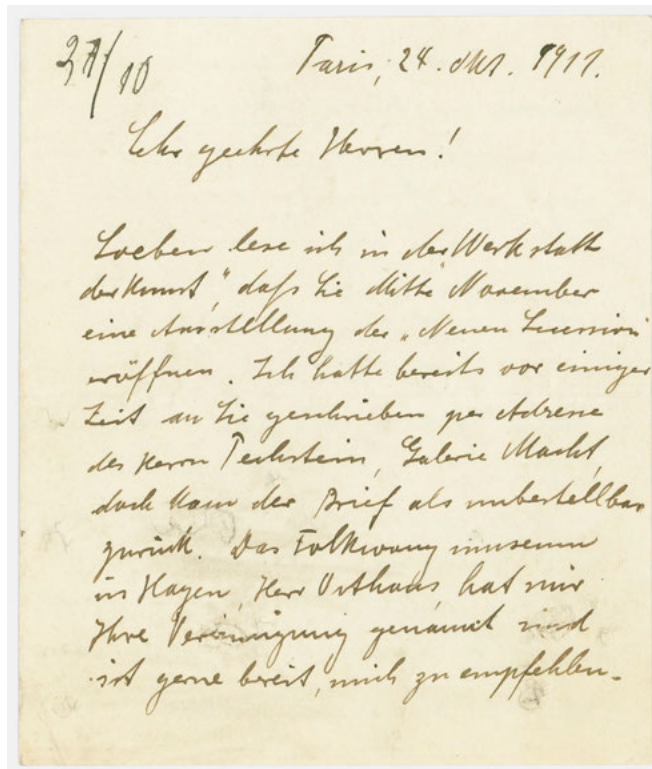 27/10
Paris, 24. Okt. 1911.
Sehr geehrte Herren!
Soeben lese ich in der Werkstatt
der Kunst", daß Sie Mitte November
eine Ausstellung der „Neuen Secession
eröffnen. Ich hatte bereits vor einiger
Zeit an Sie geschrieben per Adresse
des Herrn Pechstein, Galerie Macht,
doch kam der Brief als unbestellbar
zurück. Das Folkwang museum
in Hagen, Herr Osthaus, hat mir
Ihre Vereinigung genannt und
ist gerne bereit, mich zu empfehlen.